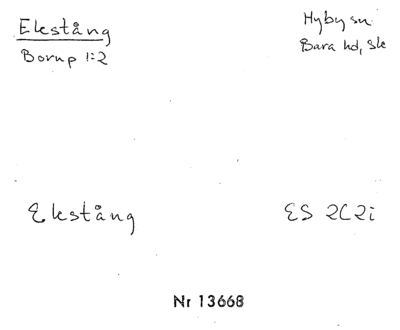 Ekstång
Borup 1:2
Hyby sn
Bara hd, Sk
Ekstång
ES 2C2i
Nr 13668